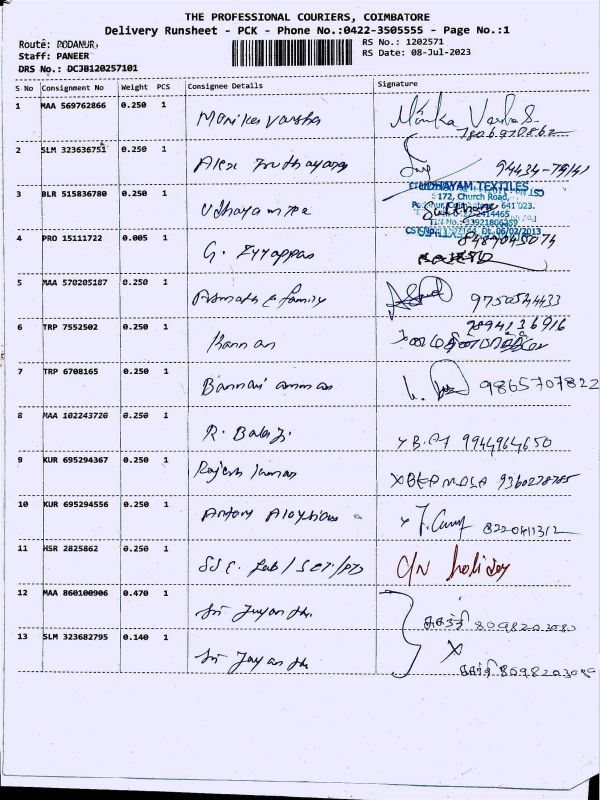 THE PROFESSIONAL COURIERS, COIMBATORE
Delivery Runsheet - PCK - Phone No.:0422-3505555 - Page No.:1
Route: PODANUR,
Staff: PANEER
DRS No.: DCJB120257101
RS No.: 1202571
RS Date: 08-Jul-2023
S No Consignment No Weight PCS Consignee Details Signature
1 MAA 569762866 0.250 1 Monika varsha Monika Varsha S
7806970862
2 SLM 323636751 0.250 1 Alex
94434-
3 BLR 515836780 0.250 1 Udhayam Tex
UDHAYAM TEXTILES
172, Church Road,
641 023.
CST No. Dt. 06/02/2013
4 PRO 15111722 0.005 1 G. Iyyappan
8489045074
5 MAA 570205187 0.250 1 Asmath & family
9750544433
6 TRP 7552502 0.250 1 Kannan
9894136916
7 TRP 6708165 0.250 1 Bannari amman
9865707822
8 MAA 102243720 0.250 1 R. Balaji
9944964650
9 KUR 695294367 0.250 1 Rajesh kumar
9360278785
10 KUR 695294556 0.250 1 Antony Aloysious
8220411312
11 HSR 2825862 0.250 1 SSE. Lab / SCT/PTJ C/N holiday
12 MAA 860100906 0.470 1 Sri Jayanthi.
8098203080
13 SLM 323682795 0.140 1 Sri Jayanthi
8098203080